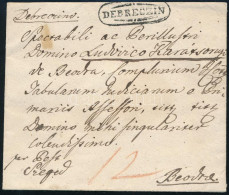 Debreczino
DEBRECZIN
Spectabili ac Perillustri
Domino Ludovico Karátsony
de Beodra, Complurium I. Cottuum
Tabularum Judiciariarum
Primario Assessori, sin, tit.
Domino mihi singulariter
colendissimo.
per Pest
Szeged
12
Beodra